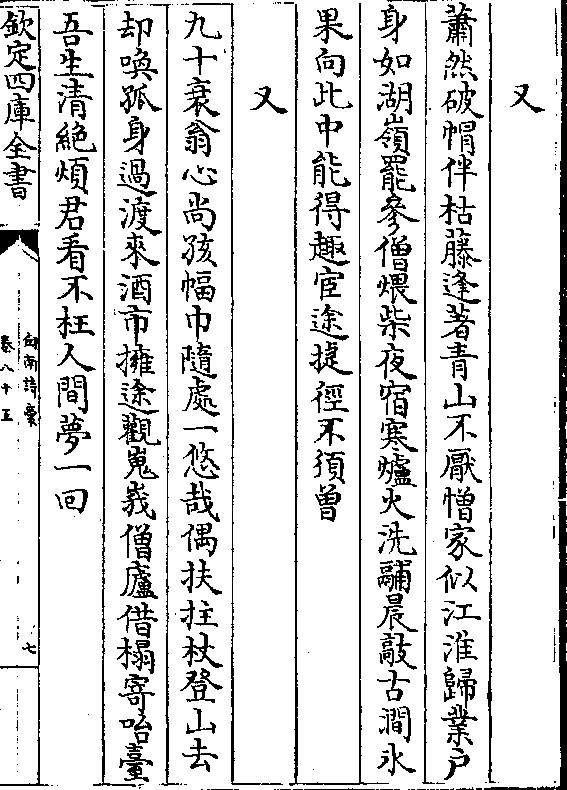 又
蕭然破帽伴枯藤逢著青山不厭憎家似江淮歸業戶
身如湖嶺罷參僧煨柴夜宿寒爐火洗鬴晨敲古澗氷
果向此中能得趣宦途捷徑不須曽
又
九十衰翁心尚孩幅巾隨處一悠哉偶扶拄杖登山去
却喚孤身過渡來酒市擁途觀嵬峩僧廬借榻寄咍臺
吾生清絶煩君看不枉人間夢一回
欽定四庫全書
劍南詩稾
卷八十五
七